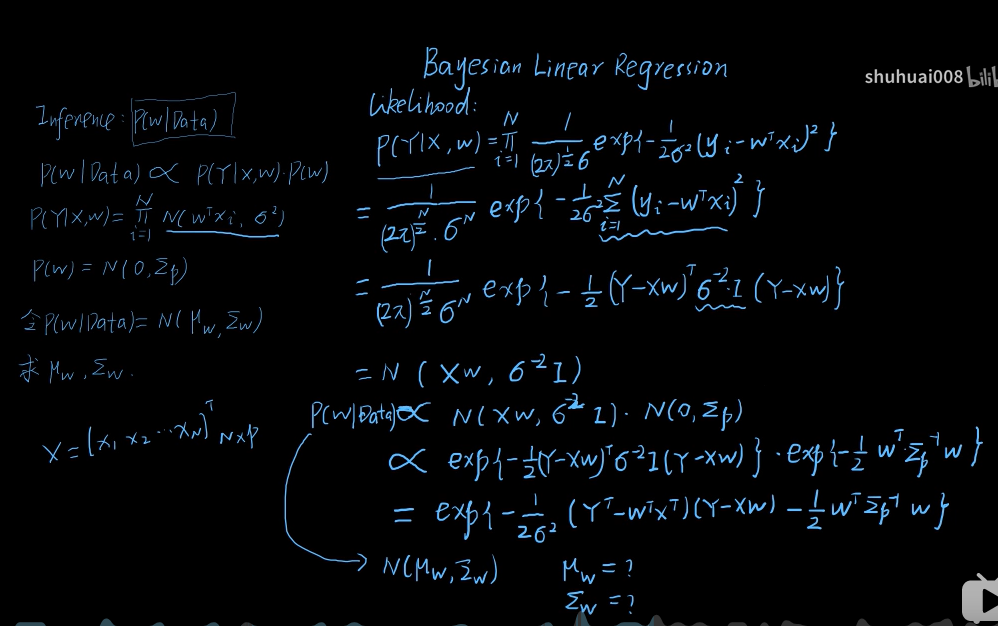 Bayesian Linear Regression
shuhuai008 bilibili
Inference: P(w|Data)
P(w|Data) ∝ P(Y|X,w)·P(w)
P(Y|X,w) = ∏_{i=1}^{N} N(wᵀxᵢ, σ²)
P(w) = N(0, Σp)
令 P(w|Data) = N(μw, Σw)
求 μw, Σw.
X = (x₁ x₂ ··· x_N)ᵀ N×P
Likelihood:
P(Y|X, w) = ∏_{i=1}^{N} 1/((2π)^{1/2} σ) exp{-1/(2σ²) (yᵢ - wᵀxᵢ)²}
= 1/((2π)^{N/2} · σ^N) exp{-1/(2σ²) Σ_{i=1}^{N} (yᵢ - wᵀxᵢ)²}
= 1/((2π)^{N/2} σ^N) exp{-1/2 (Y-Xw)ᵀ σ⁻²·I (Y-Xw)}
= N (Xw, σ⁻²I)
P(w|Data) ∝ N(Xw, σ⁻²I) · N(0, Σp)
∝ exp{-1/2 (Y-Xw)ᵀ σ⁻²I (Y-Xw)} · exp{-1/2 wᵀ Σp⁻¹ w}
= exp{-1/(2σ²) (Yᵀ-wᵀXᵀ)(Y-Xw) - 1/2 wᵀ Σp⁻¹ w}
→ N(μw, Σw) μw = ?
Σw = ?